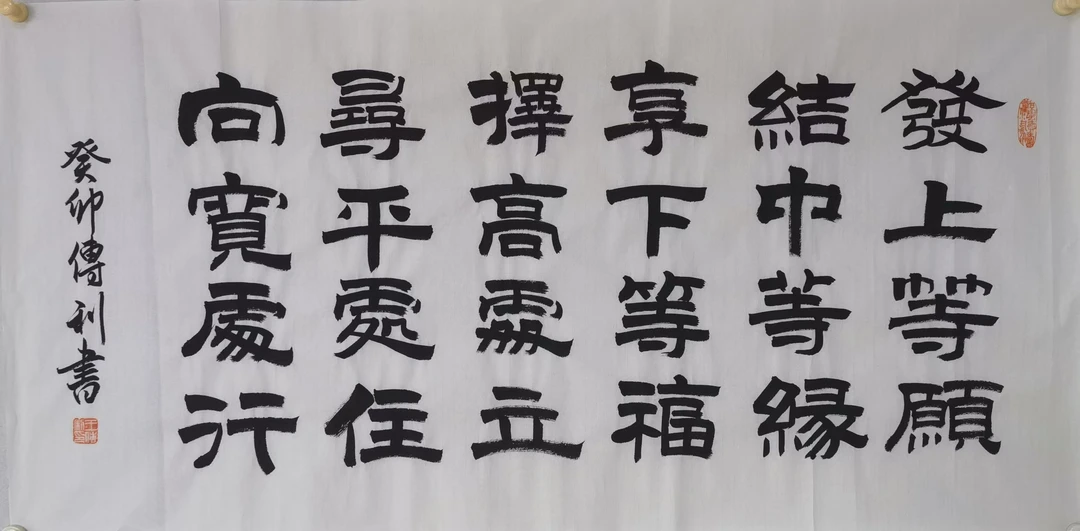 發上等願
結中等緣
享下等福
擇高處立
尋平處住
向寬處行
癸卯傳利書